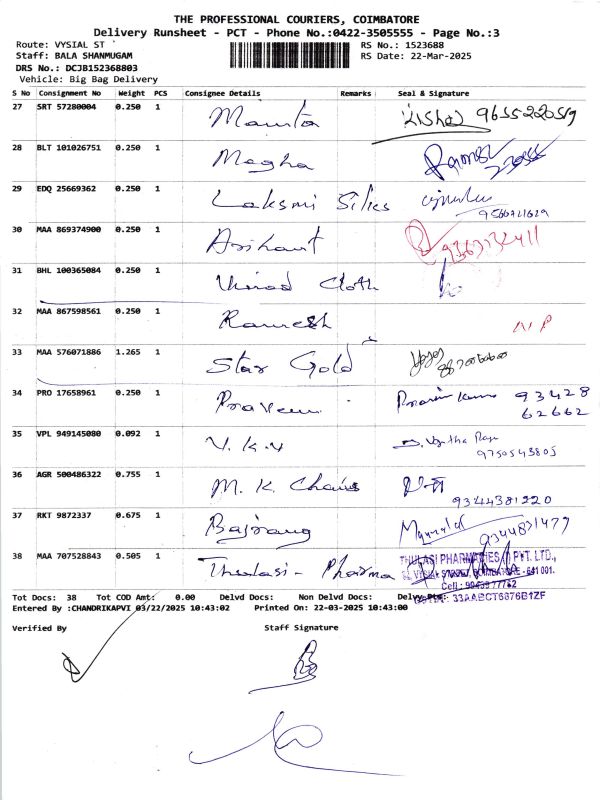 THE PROFESSIONAL COURIERS, COIMBATORE
Delivery Runsheet - PCT - Phone No.:0422-3505555 - Page No.:3
Route: VYSIAL ST
RS No.: 1523688
Staff: BALA SHANMUGAM
RS Date: 22-Mar-2025
DRS No.: DCJB152368803
Vehicle: Big Bag Delivery
S No Consignment No Weight PCS Consignee Details Remarks Seal & Signature
27 SRT 57280004 0.250 1 Mamta
28 BLT 101026751 0.250 1 Megha
29 EDQ 25669362 0.250 1 Laksmi Silks
30 MAA 869374900 0.250 1 Arihant
31 BHL 100365084 0.250 1 Vinod Cloth
32 MAA 867598561 0.250 1 Ramesh
33 MAA 576071886 1.265 1 Star Gold
34 PRO 17658961 0.250 1 Praveen Pravin Kumar 93428
62662
35 VPL 949145080 0.092 1 V.K.V
9750543805
36 AGR 500486322 0.755 1 M.K. Chains
9344381220
37 RKT 9872337 0.675 1 Bajrang 9344831477
38 MAA 707528843 0.505 1 Thulasi - Pharma
THULASI PHARMACIES (I) PVT. LTD.,
COIMBATORE - 641 001.
Tot Docs: 38 Tot COD Amt: 0.00 Delvd Docs: Non Delvd Docs:
Entered By :CHANDRIKAPVI 03/22/2025 10:43:02 Printed On: 22-03-2025 10:43:00
Verified By
Staff Signature